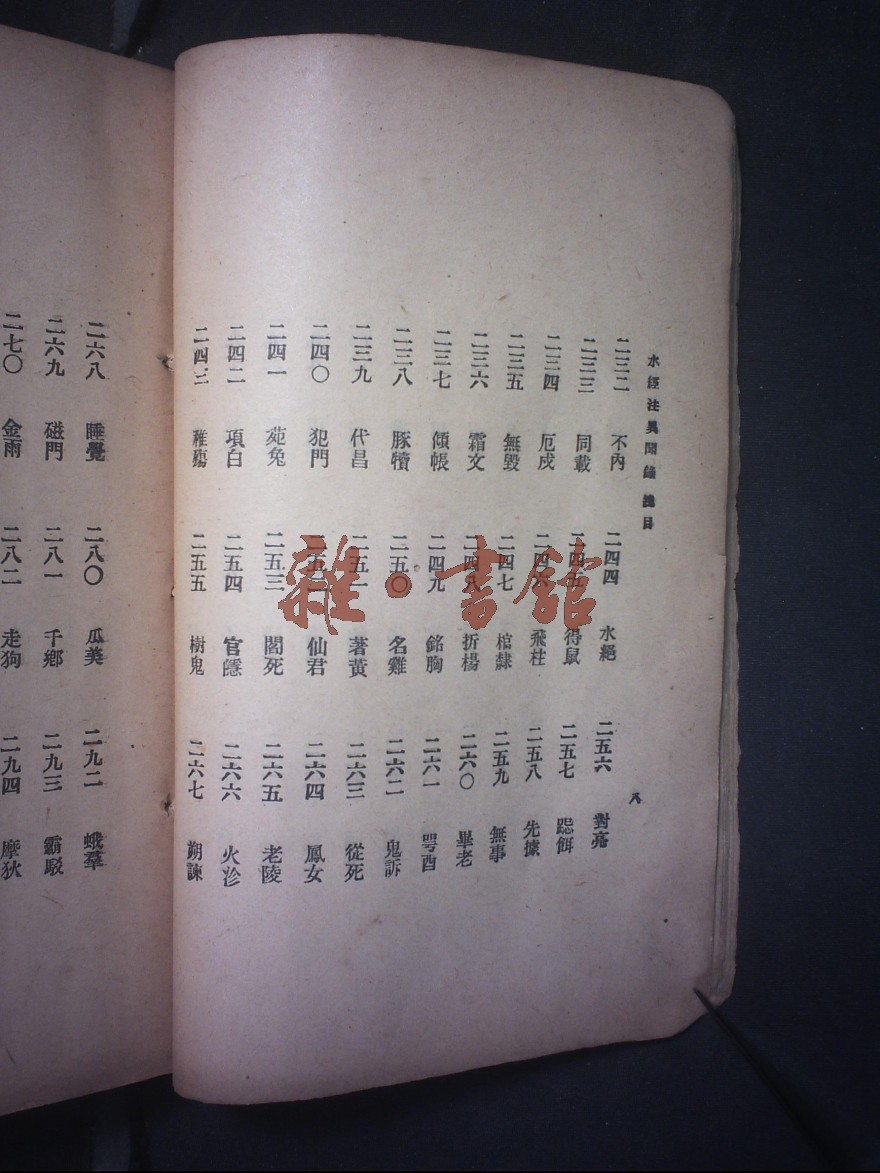 水經注異聞錄 總目
八
二三二 不內
二三三 同載
二三四 厄戍
二三五 無毀
二三六 霜文
二三七 傾帳
二三八 豚犢
二三九 代昌
二四〇 犯門
二四一 菀兔
二四二 項白
二四三 稚殤
二四四 水絕
二四五 得鼠
二四六 飛柱
二四七 棺隸
二四八 折楊
二四九 銘胸
二五〇 名雞
二五一 著黃
二五二 仙君
二五三 閣死
二五四 官隱
二五五 樹鬼
二五六 對亮
二五七 餌
二五八 先據
二五九 無事
二六〇 畢老
二六一 咢酉
二六二 鬼訴
二六三 從死
二六四 鳳女
二六五 老陵
二六六 火沴
二六七 朔諫
二六八 睡覺
二六九 磁門
二七〇 金雨
二八〇 瓜美
二八一 千鄉
二八二 走狗
二九二 蛾羣
二九三 霸駁
二九四 摩狄
雜·書館